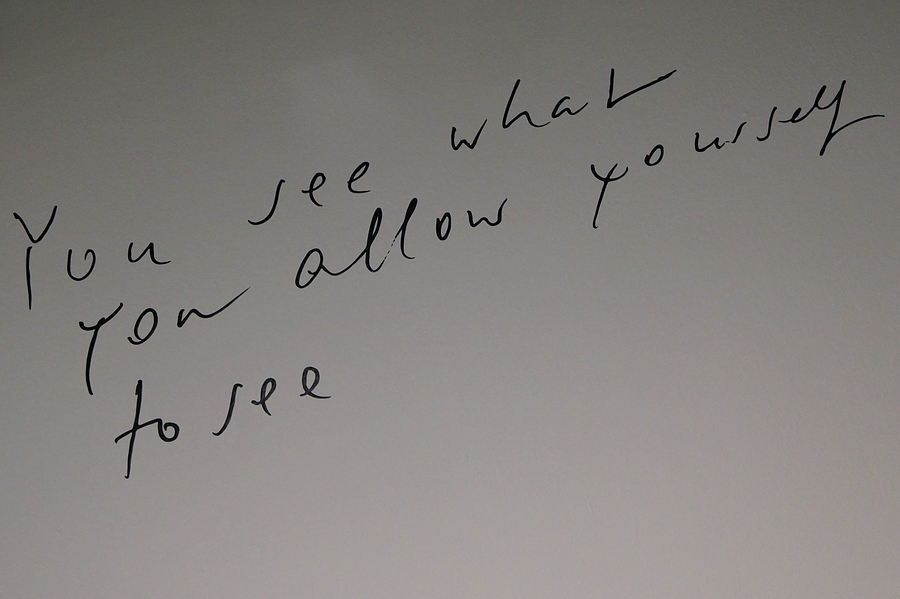 You see what
you allow yourself
to see